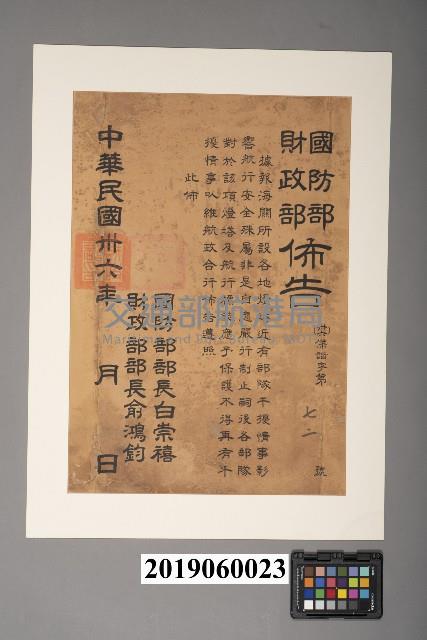 國防部
財政部
佈告
字第 七二 號
據報海關所設各地燈塔近有部隊干擾情事影
響航行安全殊屬非是自應嚴行制止嗣後各部隊
對於該項燈塔及航行標誌應予保護不得再有干
擾情事以維航政合行佈告遵照
此佈
國防部部長白崇禧
財政部部長俞鴻鈞
中華民國卅六年 月 日
交通部航港局
2019060023